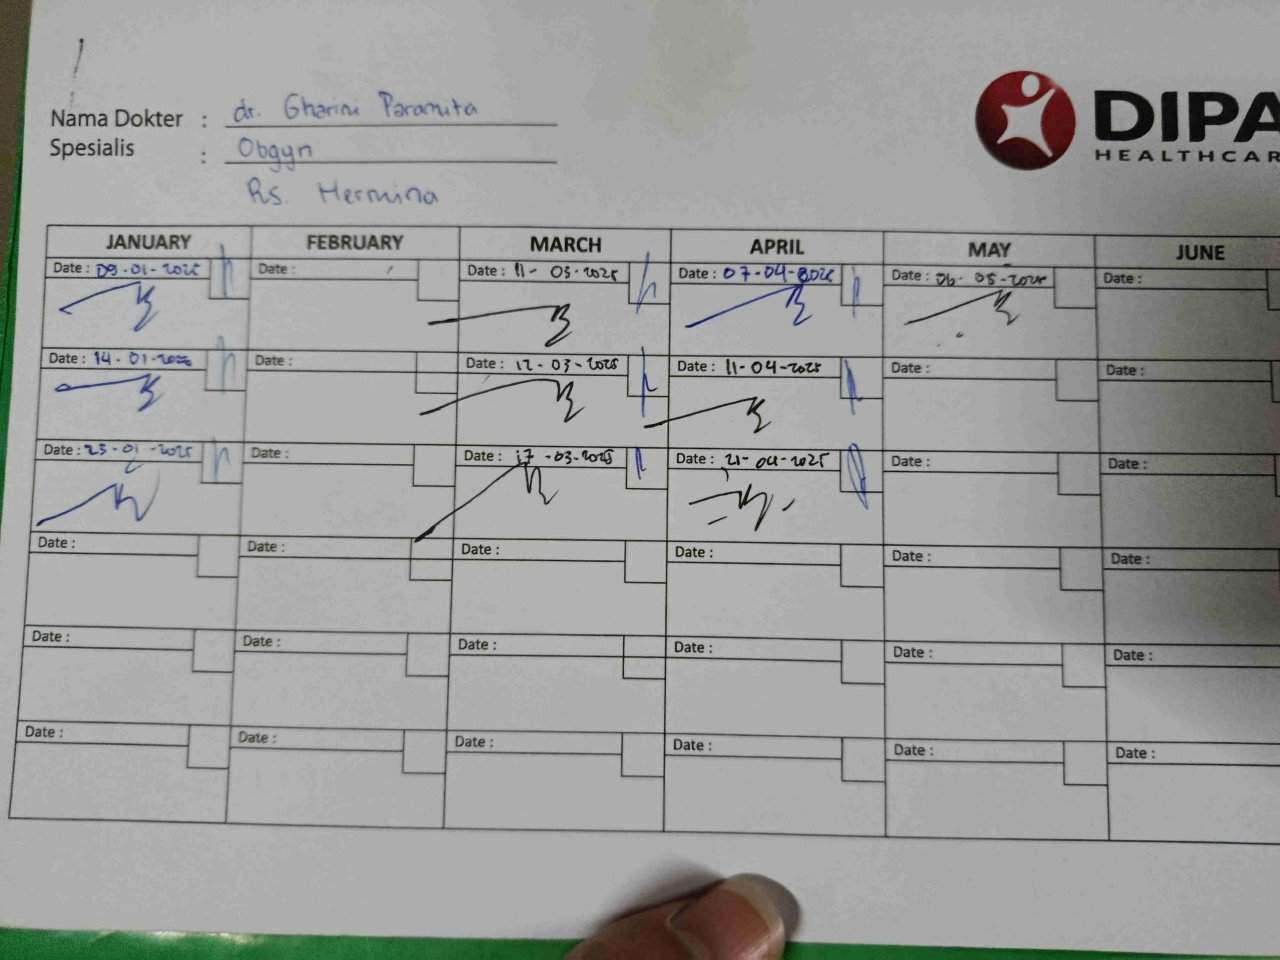 Nama Dokter : dr. Gharini Paramita
Spesialis : Obgyn
Rs. Hermina
DIPA
HEALTHCAR
JANUARY FEBRUARY MARCH APRIL MAY JUNE
Date : 09-01-2025 Date : Date : 11-03-2025 Date : 07-04-2025 Date : 06-05-2025 Date :
Date : 14-01-2025 Date : Date : 12-03-2025 Date : 11-04-2025 Date : Date :
Date : 23-01-2025 Date : Date : 17-03-2025 Date : 21-04-2025 Date : Date :
Date : Date : Date : Date : Date : Date :
Date : Date : Date : Date : Date : Date :
Date : Date : Date : Date : Date : Date :